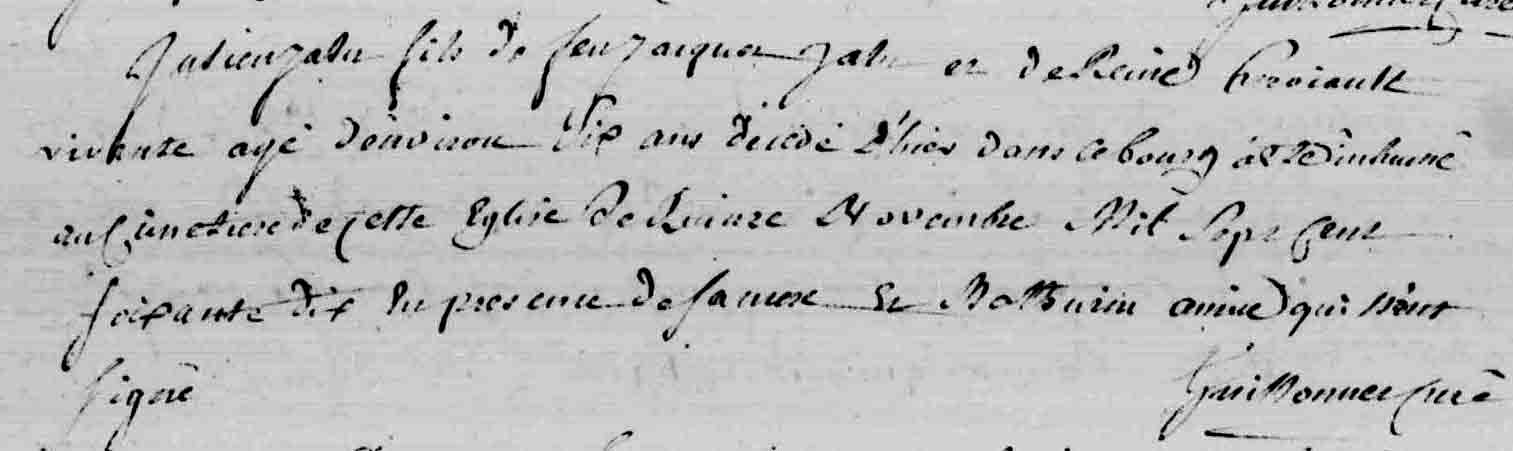 Julien Jahu fils de feu Jacques Jahu et de Reine
vivante agé d'environ dix ans decedé d'hier dans ce bourg a été inhumé
au Cimetiere de cette Eglise le Quinze Novembre Mil Sept cent
soixante dix en presence de sa mere et Mathurin qui n'ont
signé Guillonner curé